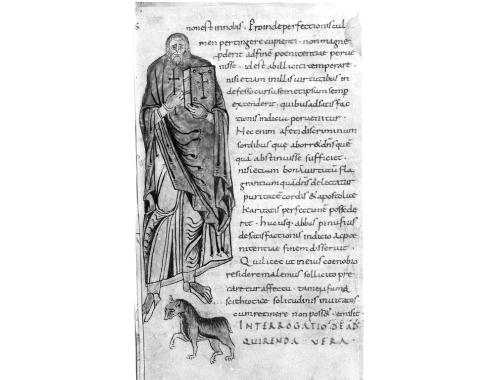 non est in nobis. Proinde perfectionis cul
men pertingere cupienti. non magne
pderit ad finē poenitentiae perue
nisse. idest ab illicitis temperare.
nisi etiam in illis uirtutibus in
defesso cursu semet ipsum semp
extenderit. quibus ad satisfac
tionis indiciū peruenitur.
Nec enim a foetidis criminum
sordibus que aborr& dn̄s que
quā abstinuisse sufficiet.
nisi etiam bonā uirtutū fla
grantium quā dn̄s delectatur
puritate cordis & apostolice
Karitatis perfectione possede
rit. hucusq. abbas pinufius
de satisfactionis indicio ac poe
nitentiae finem disseruit.
Qui licet ut in eius coenobio
residere mallemus sollicito pre
caretur affectu. tamen fama
scithiotice solitudinis inuitatos.
cum retinere non poss& emisit.
INTERROGATIO DE AD
QUIRENDA VERA